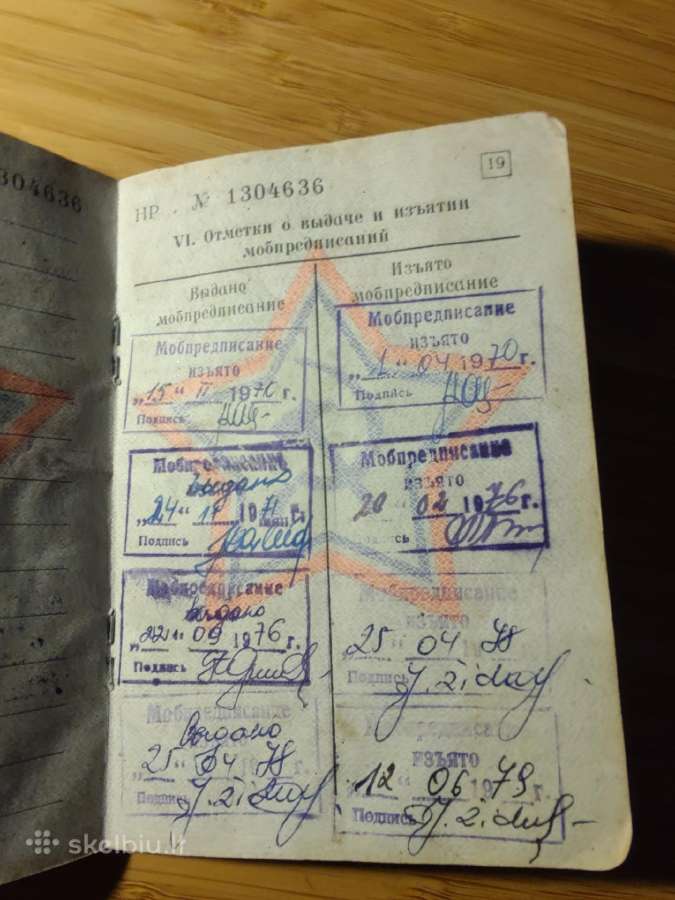 304636
НР № 1304636
19
VI. Отметки о выдаче и изъятии
мобпредписаний
Выдано
мобпредписание
Изъято
мобпредписание
Мобпредписание
изъято
„15“ II 1970 г.
Подпись
Мобпредписание
изъято
„1“ 04 1970 г.
Подпись
Мобпредписание
выдано
„24“ 1971
Подпись
Мобпредписание
изъято
20 02 1976 г.
Подпись
Мобпредписание
выдано
„22“ 06 1976 г.
Подпись
Мобпредписание
изъято
25 04 78
Подпись
Мобпредписание
выдано
25 04 78
Подпись
Мобпредписание
изъято
„12“ 06 1979 г.
Подпись
skelbiu.lt